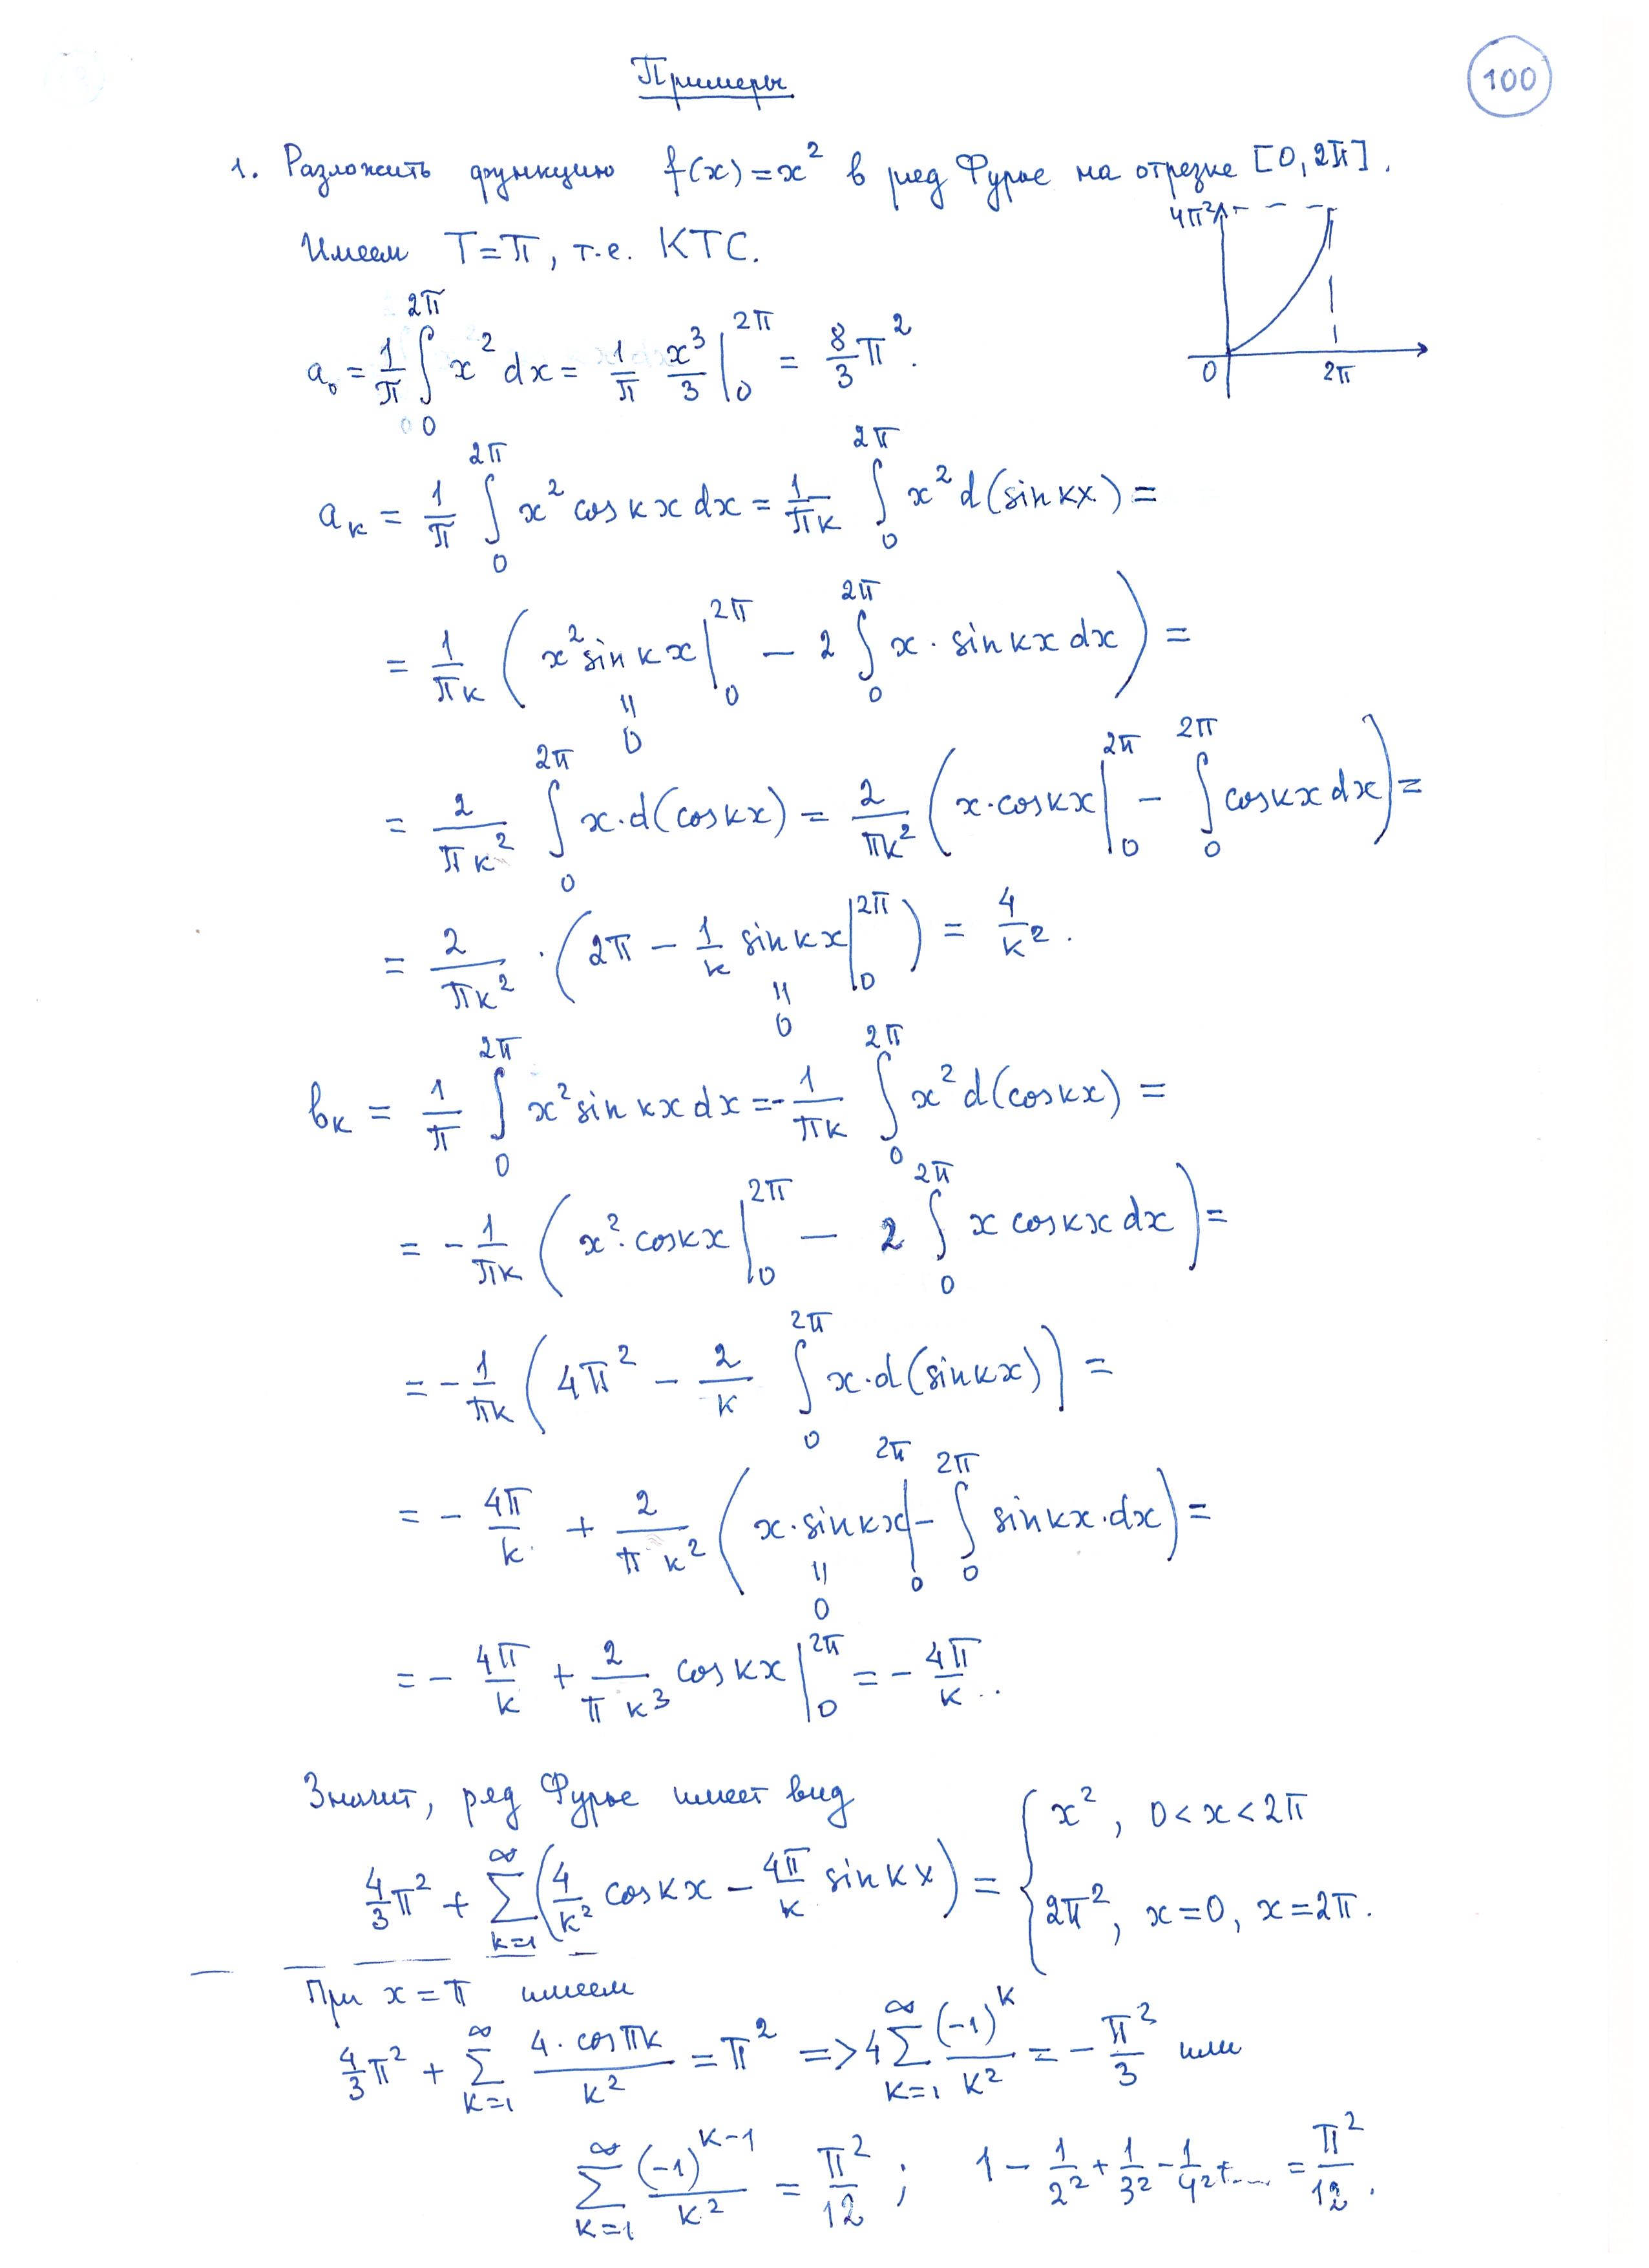 Примеры
100
1. Разложить функцию f(x) = x² в ряд Фурье на отрезке [0, 2π].
4π²
0 2π
Имеем T = π, т.е. КТС.
a₀ = 1/π ∫₀^{2π} x² dx = 1/π x³/3 |₀^{2π} = 8/3 π².
aₖ = 1/π ∫₀^{2π} x² cos kx dx = 1/(πk) ∫₀^{2π} x² d(sin kx) =
= 1/(πk) ( x² sin kx |₀^{2π} − 2 ∫₀^{2π} x · sin kx dx ) =
= 0
= 2/(πk²) ∫₀^{2π} x · d(cos kx) = 2/(πk²) ( x · cos kx |₀^{2π} − ∫₀^{2π} cos kx dx ) =
= 2/(πk²) · ( 2π − 1/k sin kx |₀^{2π} ) = 4/k².
= 0
bₖ = 1/π ∫₀^{2π} x² sin kx dx = − 1/(πk) ∫₀^{2π} x² d(cos kx) =
= − 1/(πk) ( x² · cos kx |₀^{2π} − 2 ∫₀^{2π} x cos kx dx ) =
= − 1/(πk) ( 4π² − 2/k ∫₀^{2π} x · d(sin kx) ) =
= − 4π/k + 2/(π k²) ( x · sin kx |₀^{2π} − ∫₀^{2π} sin kx · dx ) =
= 0
= − 4π/k + 2/(π k³) cos kx |₀^{2π} = − 4π/k ..
Значит, ряд Фурье имеет вид
4/3 π² + ∑_{k=1}^{∞} ( 4/k² cos kx − 4π/k sin kx ) = { x², 0 < x < 2π
2π², x = 0, x = 2π.
При x = π имеем
4/3 π² + ∑_{k=1}^{∞} (4 · cos πk)/k² = π² => 4 ∑_{k=1}^{∞} (−1)^k/k² = − π²/3 или
∑_{k=1}^{∞} (−1)^{k−1}/k² = π²/12 ; 1 − 1/2² + 1/3² − 1/4² + ... = π²/12.